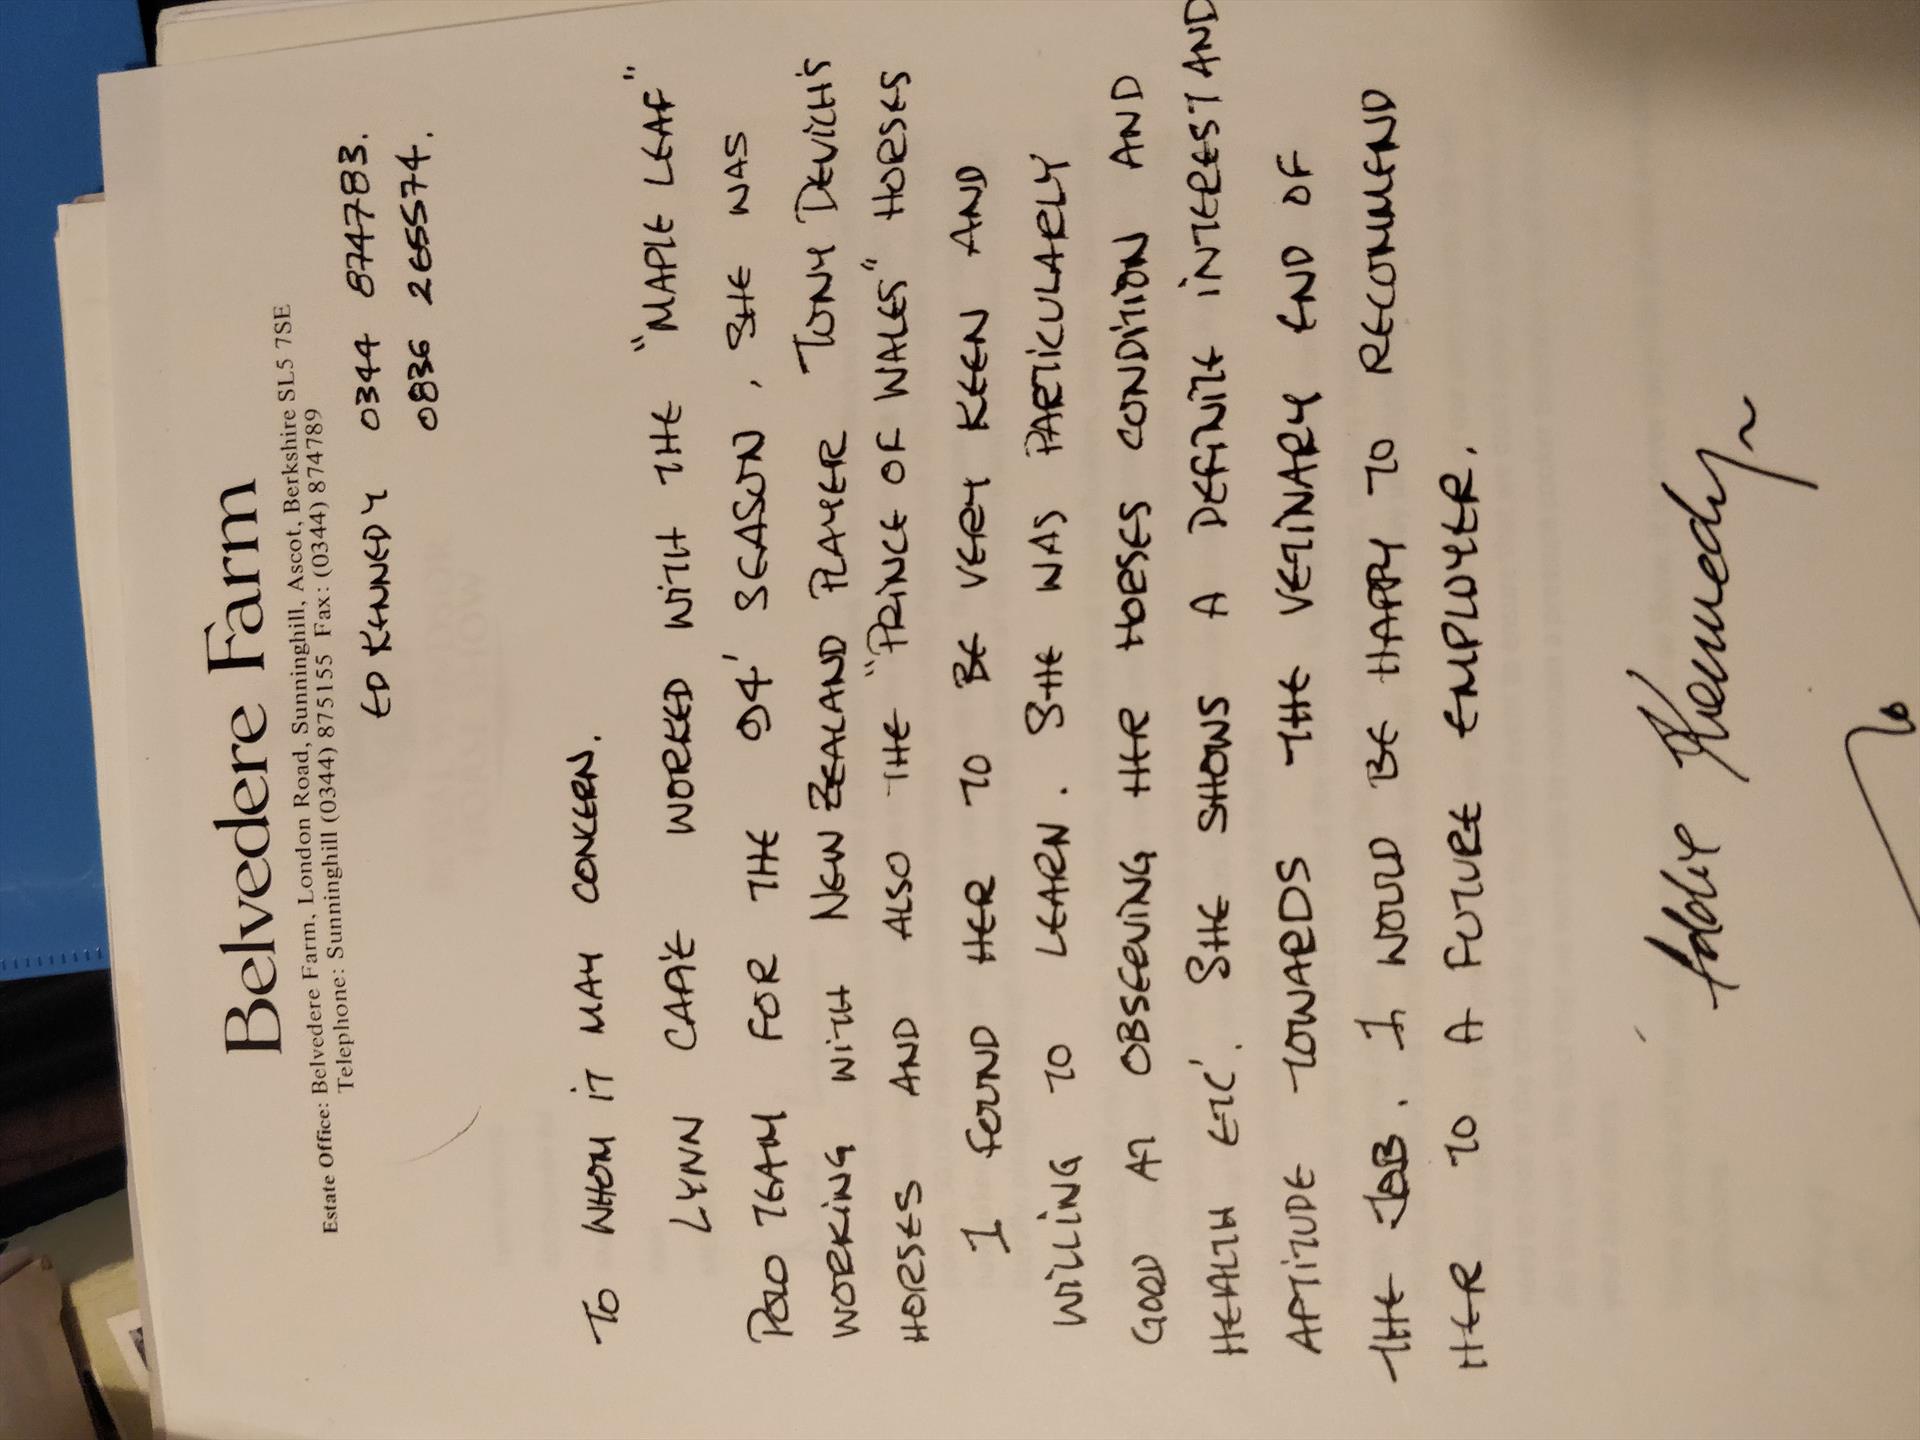 Belvedere Farm
Estate Office: Belvedere Farm, London Road, Sunninghill, Ascot, Berkshire SL5 7SE
Telephone: Sunninghill (0344) 875155 Fax: (0344) 874789
ED KENNEDY 0344 874783.
0836 265574.
TO WHOM IT MAY CONCERN.
LYNN WORKED WITH THE "MAPLE LEAF"
POLO TEAM FOR THE 94' SEASON, SHE WAS
WORKING WITH NEW ZEALAND PLAYER TONY DEVICH'S
HORSES AND ALSO THE "PRINCE OF WALES" HORSES
I FOUND HER TO BE VERY KEEN AND
WILLING TO LEARN. SHE WAS PARTICULARLY
GOOD AT OBSERVING HER HORSES CONDITION AND
HEALTH ETC'. SHE SHOWS A DEFINITE INTEREST AND
APTITUDE TOWARDS THE VETINARY END OF
THE JOB. I WOULD BE HAPPY TO RECOMMEND
HER TO A FUTURE EMPLOYER.
Kennedy